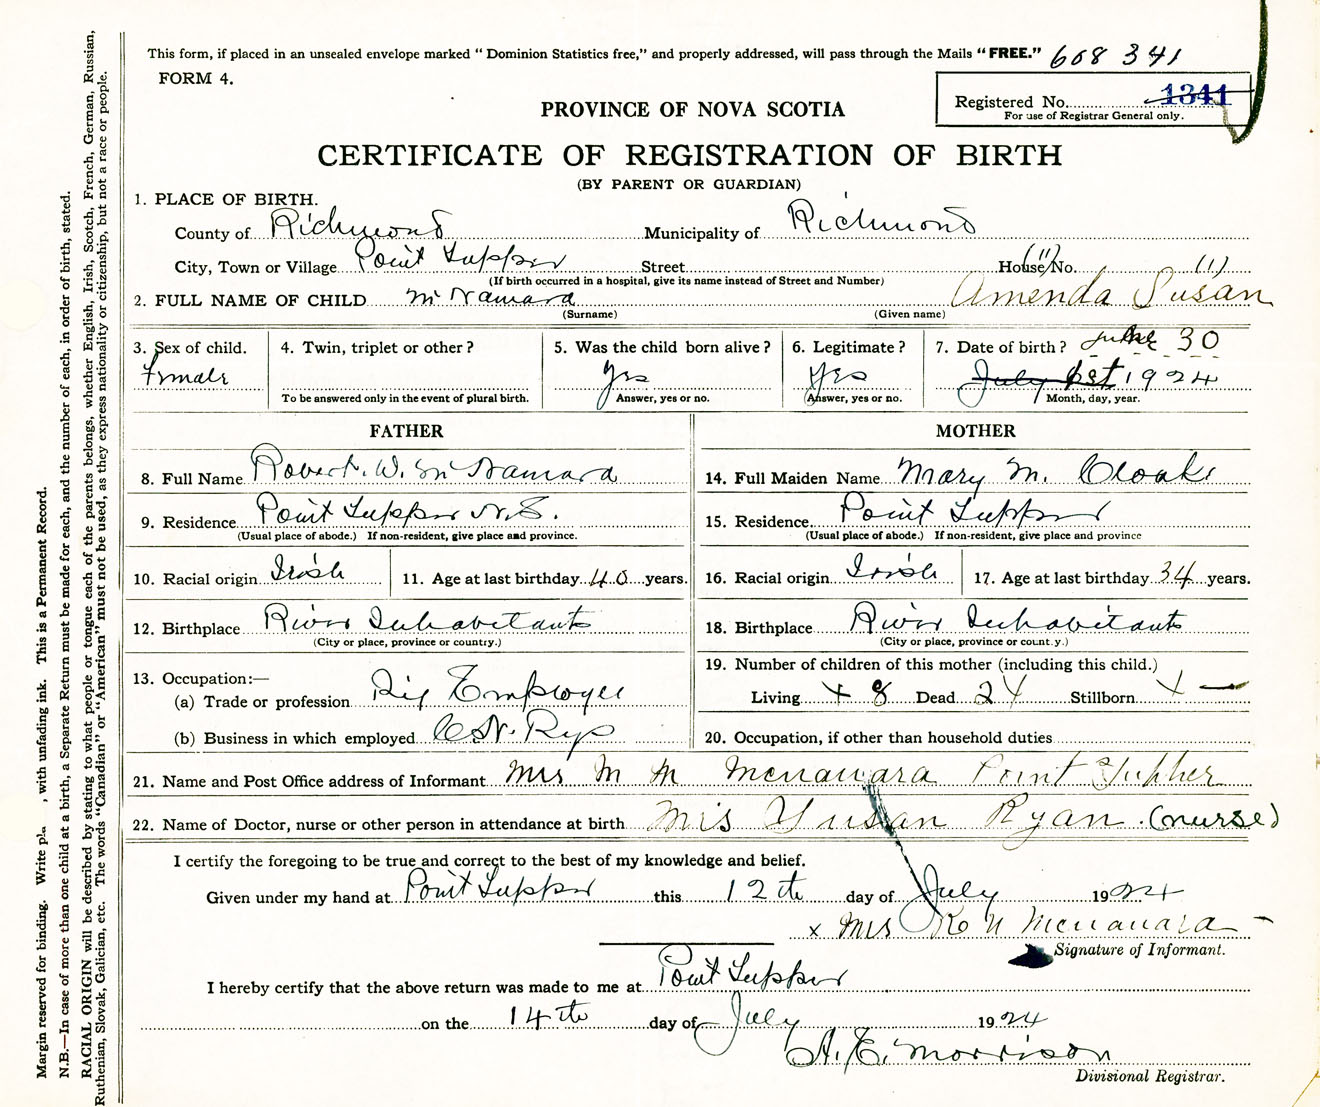 This form, if placed in an unsealed envelope marked " Dominion Statistics free," and properly addressed, will pass through the Mails "FREE." 608 341
FORM 4.
Registered No. 1341
For use of Registrar General only.
PROVINCE OF NOVA SCOTIA
CERTIFICATE OF REGISTRATION OF BIRTH
(BY PARENT OR GUARDIAN)
1. PLACE OF BIRTH.
County of Richmond Municipality of Richmond
City, Town or Village Point Tupper Street House No. (11) (1)
(If birth occurred in a hospital, give its name instead of Street and Number)
2. FULL NAME OF CHILD McNamara Amenda Susan
(Surname) (Given name)
3. Sex of child. 4. Twin, triplet or other? 5. Was the child born alive? 6. Legitimate? 7. Date of birth? June 30
Female Yes Yes July 1st 1924
To be answered only in the event of plural birth. Answer, yes or no. Answer, yes or no. Month, day, year.
FATHER MOTHER
8. Full Name Robert. W. McNamara 14. Full Maiden Name Mary M. Cloak
9. Residence Point Tupper N.S. 15. Residence. Point Tupper
(Usual place of abode.) If non-resident, give place and province. (Usual place of abode.) If non-resident, give place and province
10. Racial origin Irish 11. Age at last birthday 40 years. 16. Racial origin Irish 17. Age at last birthday 34 years.
12. Birthplace River Inhabitants 18. Birthplace River Inhabitants
(City or place, province or country.) (City or place, province or country.)
13. Occupation:— 19. Number of children of this mother (including this child.)
(a) Trade or profession Employee Living 8 Dead 2 Stillborn —
(b) Business in which employed C.N. Rys 20. Occupation, if other than household duties
21. Name and Post Office address of Informant Mrs M M Mcnamara Point Tupper
22. Name of Doctor, nurse or other person in attendance at birth Mrs Susan Ryan. (nurse)
I certify the foregoing to be true and correct to the best of my knowledge and belief.
Given under my hand at Point Tupper this 12th day of July 1924
x Mrs Mcnamara
Signature of Informant.
I hereby certify that the above return was made to me at Point Tupper
on the 14th day of July 1924
A. E. Morrison
Divisional Registrar.
Margin reserved for binding. Write , with unfading ink. This is a Permanent Record.
N.B.—In case of more than one child at a birth, a Separate Return must be made for each, and the number of each, in order of birth, stated.
RACIAL ORIGIN will be described by stating to what people or tongue each of the parents belongs, whether English, Irish, Scotch, French, German, Russian,
Ruthenian, Slovak, Galician, etc. The words "Canadian" or "American" must not be used, as they express nationality or citizenship, but not a race or people.